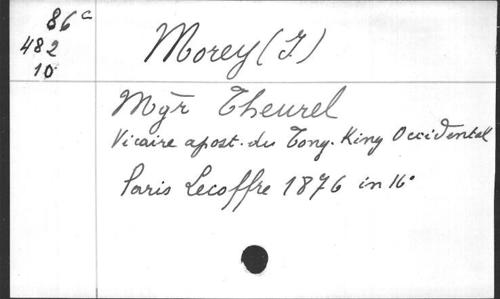 86 c
482
10
Morey (J)
Mgr Theurel
Vicaire apost. du Tong. King Occidental
Paris Lecoffre 1876 in 16°